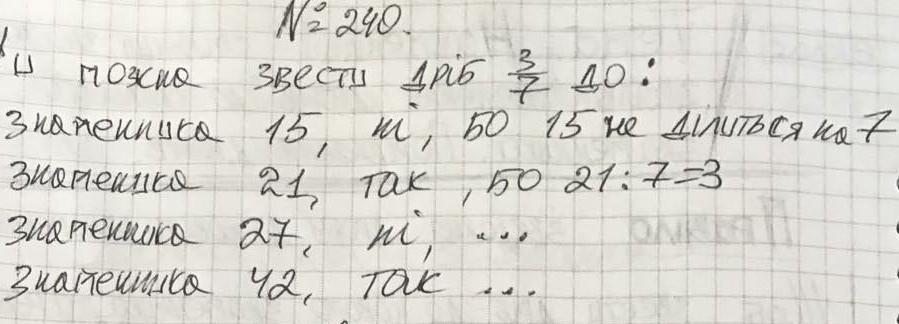 № 240.
Ц можна звести дріб 3/7 до:
Знаменника 15, ні, бо 15 не ділиться на 7
Знаменника 21, так, бо 21:7=3
Знаменника 27, ні, ...
Знаменника 42, так ...